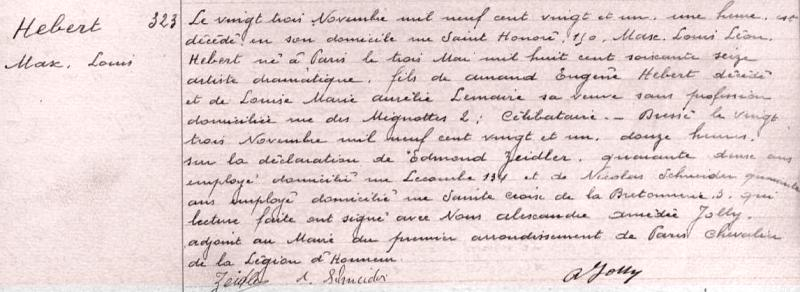 Hebert
Max, Louis
323
Le vingt trois Novembre mil neuf cent vingt et un, une heure, est
décédé en son domicile rue Saint Honoré, 150, Max, Louis Léon,
Hebert né à Paris le trois Mai mil huit cent soixante seize
artiste dramatique, fils de Amand Eugène Hebert décédé
et de Louise Marie Aurélie Lemaire sa veuve sans profession
domiciliée rue des Mignottes 2; Célibataire. — Dressé le vingt
trois Novembre mil neuf cent vingt et un, douze heures,
sur la déclaration de Edmond Zeidler, quarante deux ans
employé domicilié rue Lecombe 134 et de Nicolas Schneider quarante
ans employé domicilié rue Sainte Croix de la Bretonnerie 3, qui
lecture faite ont signé avec Nous Alexandre Amédée Jolly,
adjoint au Maire du premier arrondissement de Paris Chevalier
de la Légion d'Honneur
Zeidler N. Schneider A Jolly